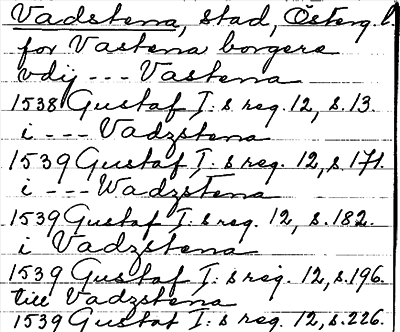 Vadstena, stad, Österg. l.
for Vastena borgere
vdij --- Vastena
1538 Gustaf I:s reg. 12, s. 13.
i --- Vadzstena
1539 Gustaf I:s reg. 12, s. 171.
i --- Wadzstena
1539 Gustaf I:s reg. 12, s. 182.
i Vadzstena
1539 Gustaf I:s reg. 12, s. 196.
till Vadzstena
1539 Gustaf I:s reg. 12, s. 226.